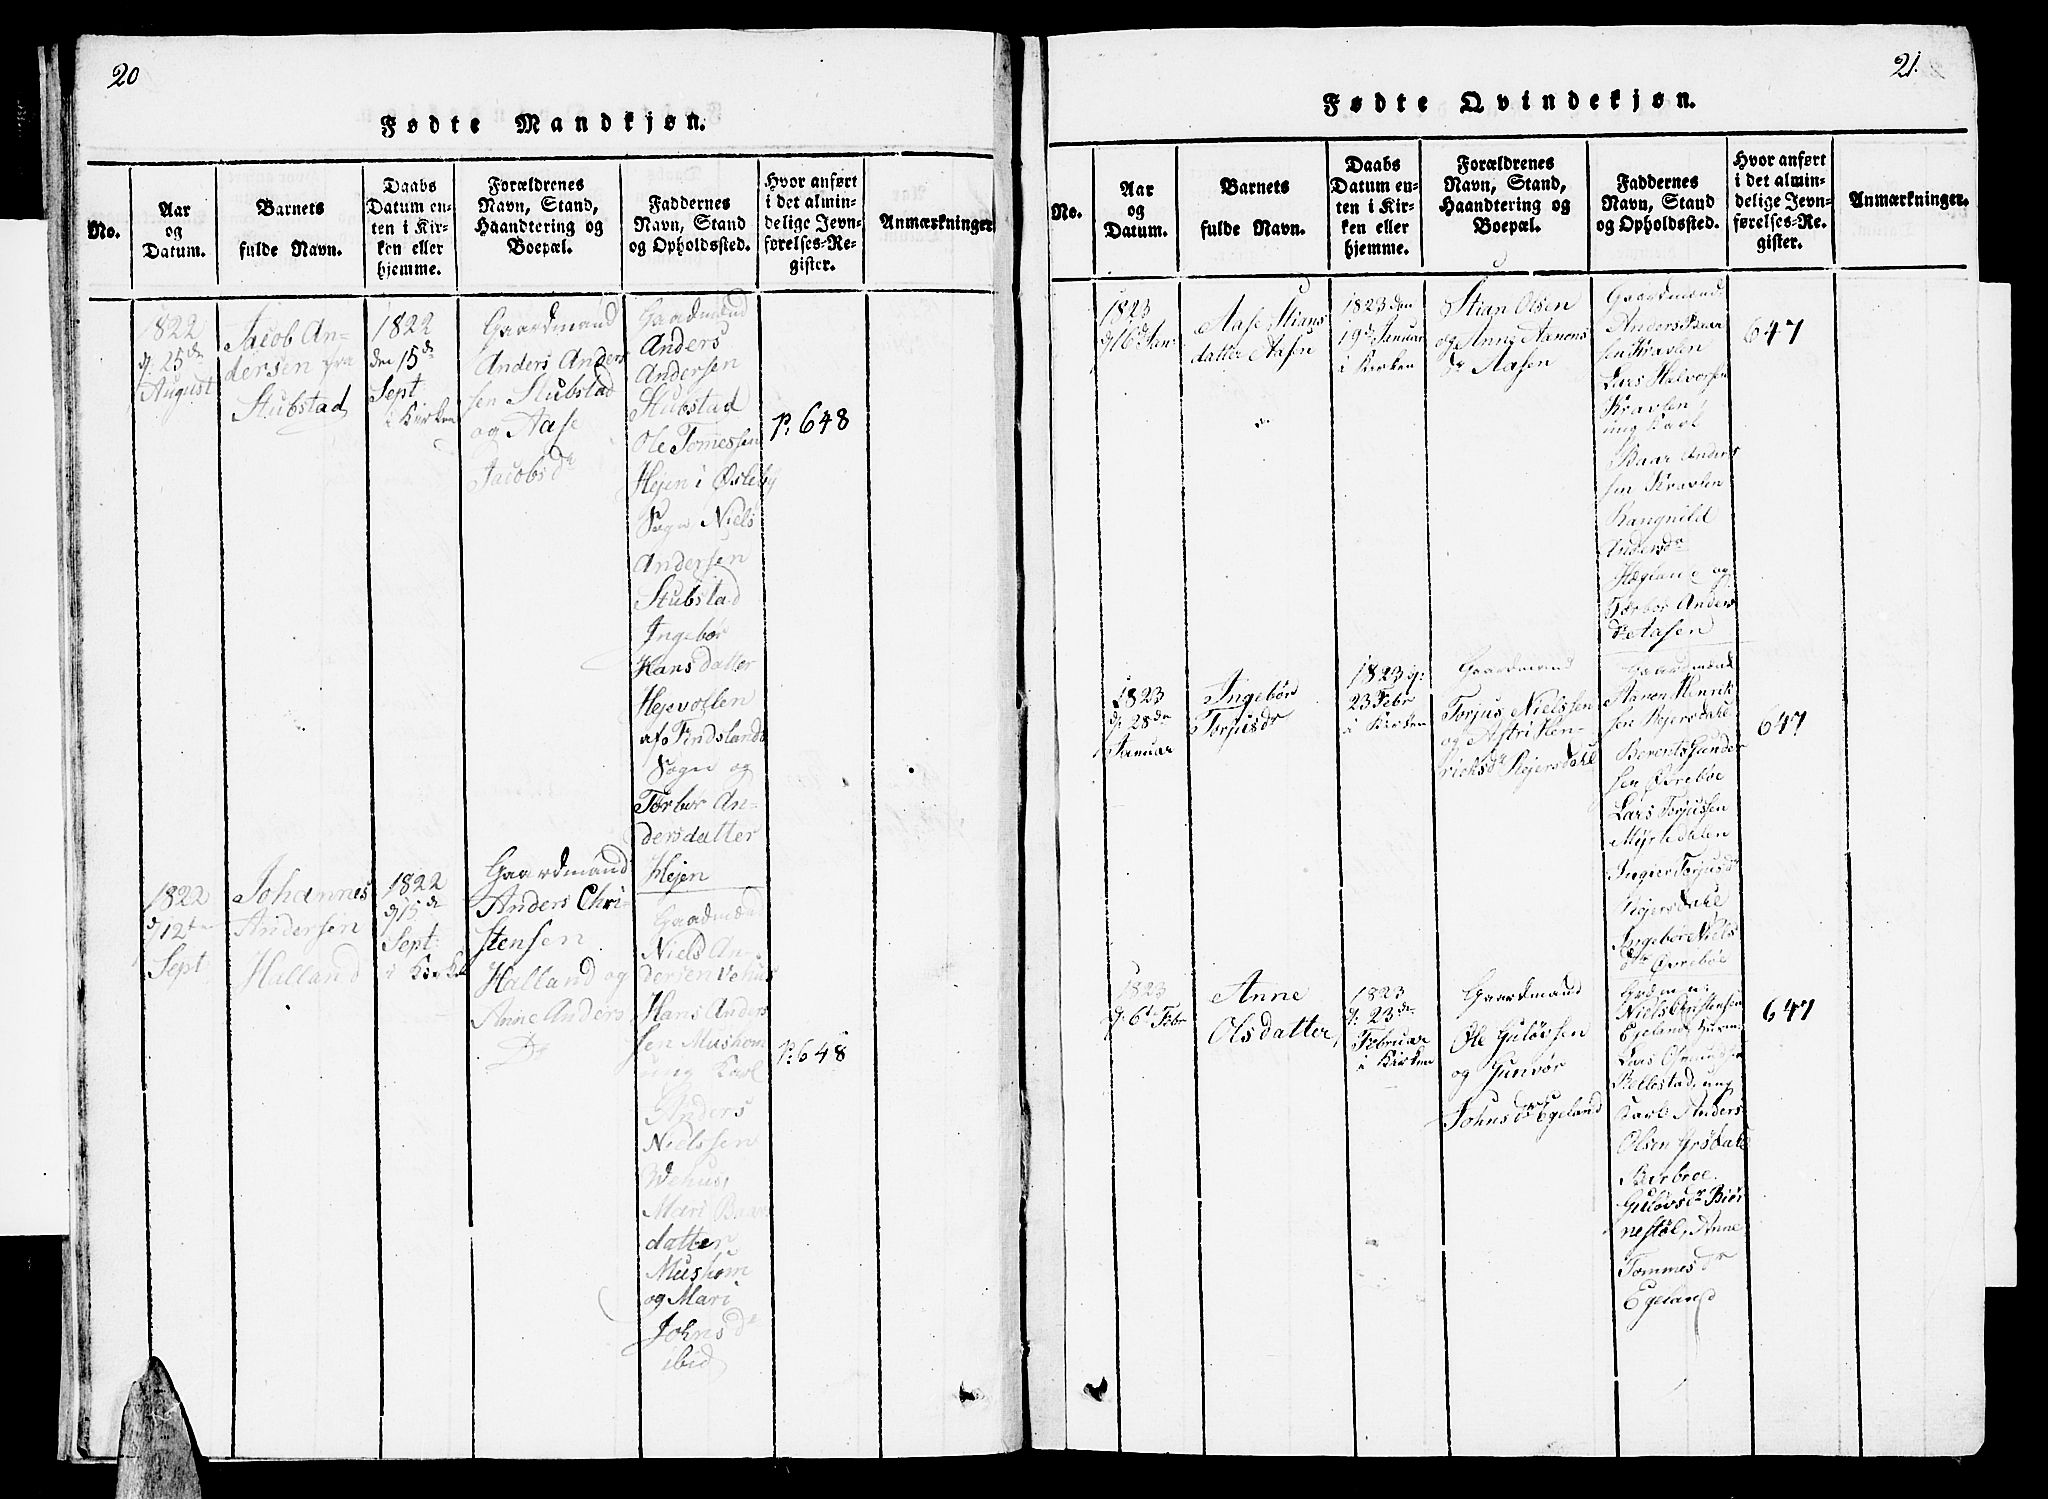 20
Fødte Mandkjøn.
No.
Aar
og
Datum.
Barnets
fulde Navn.
Daabs
Datum en-
ten i Kir-
ken eller
hjemme.
Forældrenes
Navn, Stand,
Haandtering og
Boepæl.
Faddernes
Navn, Stand
og Opholdssted.
Hvor anført
i det almin-
delige Jevn-
førelses-Re-
gister.
Anmærkninger
1822
d. 25de
August
Jacob An-
dersen fra
Stubstad
1822
den 15de
Sept.
i Kirken
Gaardmand
Anders Anders
sen Stubstad
og Aase
Jacobsdr
Gaardmænd
Anders
Andersen
Stubstad
Ole Tomessen
Hejen i Øsleby
Sogn Niels
Andersen
Stubstad
Ingebør
Hansdatter
Hejevollen
af Findslands
Sogn og
Torbør An-
dersdatter
Hejen
P. 648
1822
d 12te
Sept
Johannes
Andersen
Halland
1822
d 15de
Sept.
i Kirken
Gaardmand
Anders Chri-
stensen
Halland og
Anne Anders
Dr
Gaardmænd
Niels An-
dersen Vehus
Hans Anders
sen Mushom
ung Karl
Anders
Nielssen
Wehus,
Mari Baars
datter
Mushom
og Mari
Johnsdr
ibid
P. 648
21.
Fødte Qvindekjøn.
No.
Aar
og
Datum.
Barnets
fulde Navn.
Daabs
Datum en-
ten i Kir-
ken eller
hjemme.
Forældrenes
Navn, Stand,
Haandtering og
Boepæl.
Faddernes
Navn, Stand
og Opholdssted.
Hvor anført
i det almin-
delige Jevn-
førelses-Re-
gister.
Anmærkninger.
1823
d 16de Jan:
Aase Stians
datter Aasen
1823 den
19de Januar
i Kirken
Stian Olsen
og Anne Aanons
dr Aasen
Gaardmænd
Anders Baar
sen Kravlen
Lars Halvorsen
Kravlen
ung Karl
Baar Anders
sen Kravlen
Rangnild
Andersdr
og
Torbør Anders
dr Aasen
647
1823
d. 28de
Januar
Ingebør
Torjusdr
1823 d:
23 Febr
i Kirken
Gaardmand
Torjus Nielssen
og Astri Hen-
ricksdr Rejersdahl
Gaardmænd
Aanon Henrik
sen Rejersdahl
Berent Gunder
sen Øvrebøe
Lars Torjussen
Myrkdalen
Ingier Torjusdr
Rejersdahl
Ingebor Niels
dr Øvrebøe
647
1823
d. 6te Febr
Anne
Olsdatter
1823
d. 23de
Februar
i Kirken
Gaardmand
Ole Guløvsen
og Gunvør
Johnsdr Egeland
Grdm:
Niels Cristensen
Egeland
Lars
ung
Karl Anders
Olsen
Barbroe
Guløvsdr Biør
nestøl, Anne
Tommesdr
Egeland
647